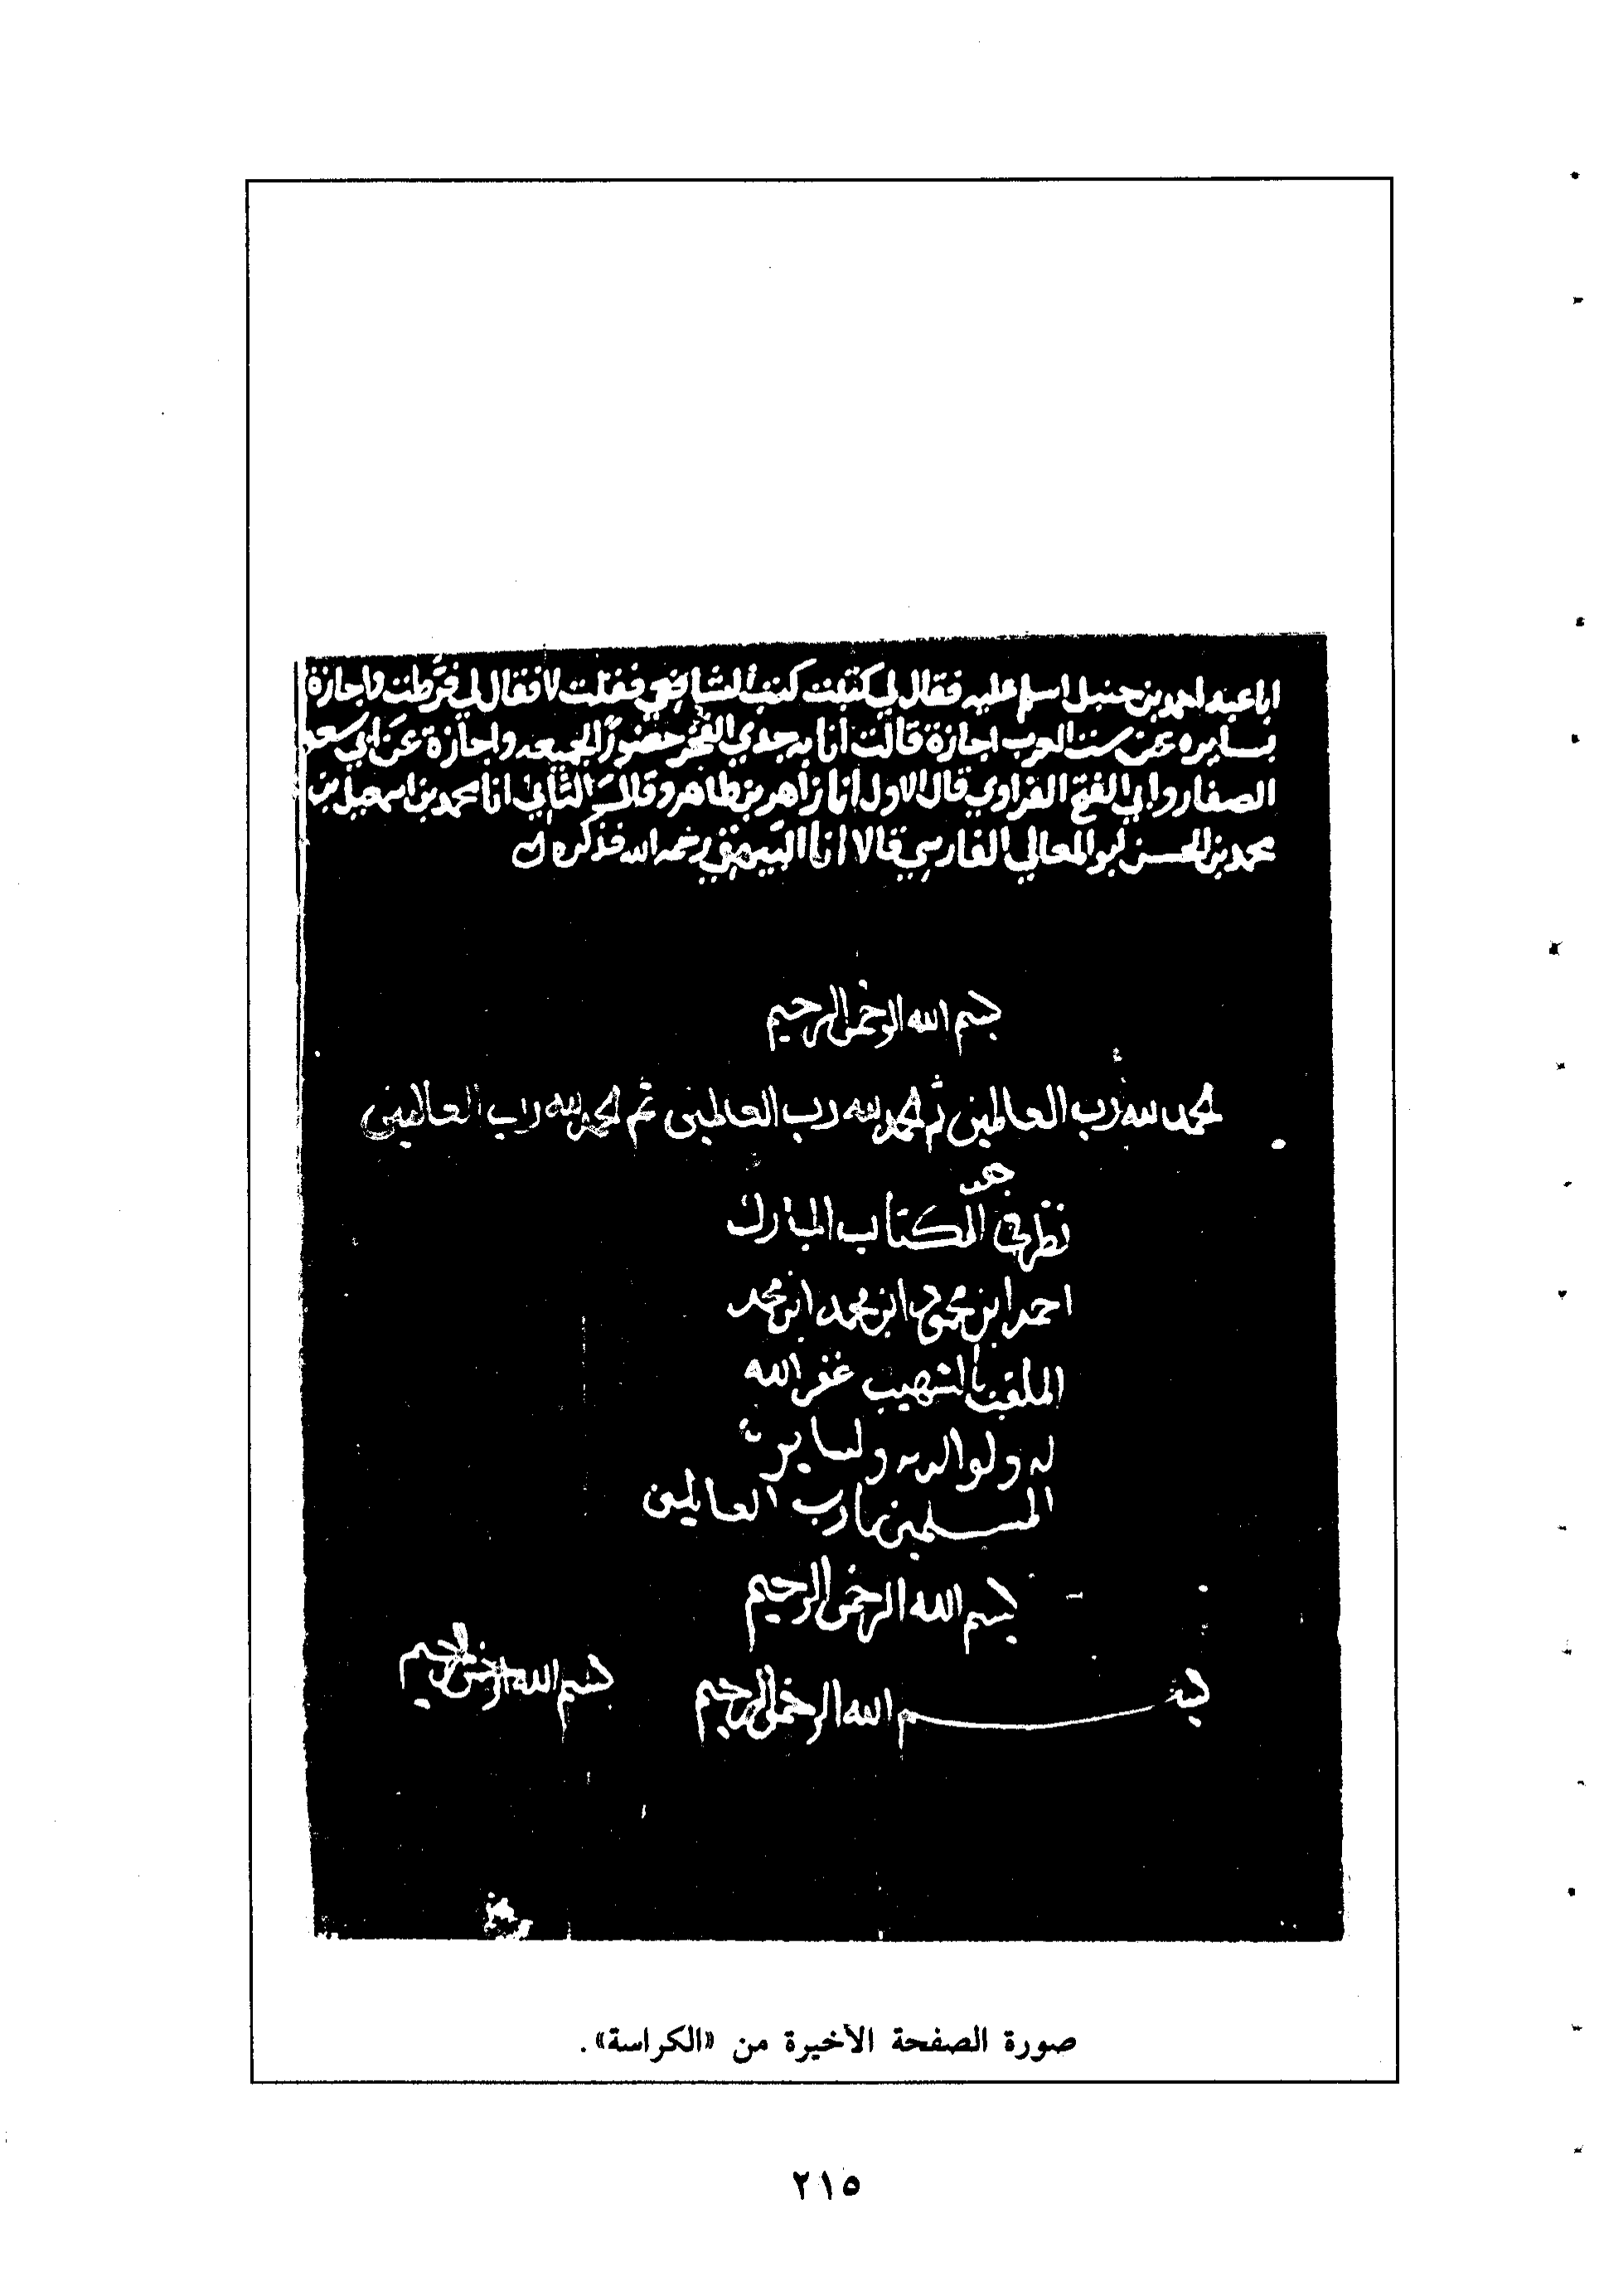 ابا عبد احمد بن حنبل اسلم عليه فقال لي كتبت كتب الشافعي فقلت لا فقال لي فرّطت واجازة
بسايره عن ست العرب اجازة قالت أنا به جدي الفخر حضورًا لجميعه واجازة عن ابي سعد
الصفار وابي الفتح الفراوي قال الاول أنا زاهر بن طاهر وقال الثاني انا محمد بن اسمعيل بن
محمد بن الحسن ابو المعالي الفارسي قالا انا البيهقي رحمه الله فذكره
بسم الله الرحمن الرحيم
الحمد لله رب العالمين ثم الحمد لله رب العالمين ثم الحمد لله رب العالمين
نظر في الكتاب المبارك
احمد ابن محمود ابن محمد ابن محمد
الملقب بالشهيب غفر الله
له ولوالديه ولساير
المسلمين يا رب العالمين
بسم الله الرحمن الرحيم
بسم الله الرحمن الرحيم
بسم الله الرحمن الرحيم
صورة الصفحة الأخيرة من «الكراسة».
٢١٥